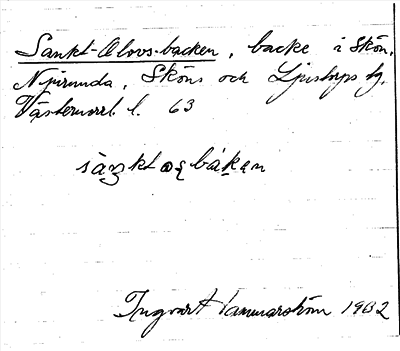 Sankt-Olovs-backen, backe i Skön,
Njurunda, Sköns och Ljustorps tg.
Västernorrl. l. 63
Ingvart Hammarström 1932